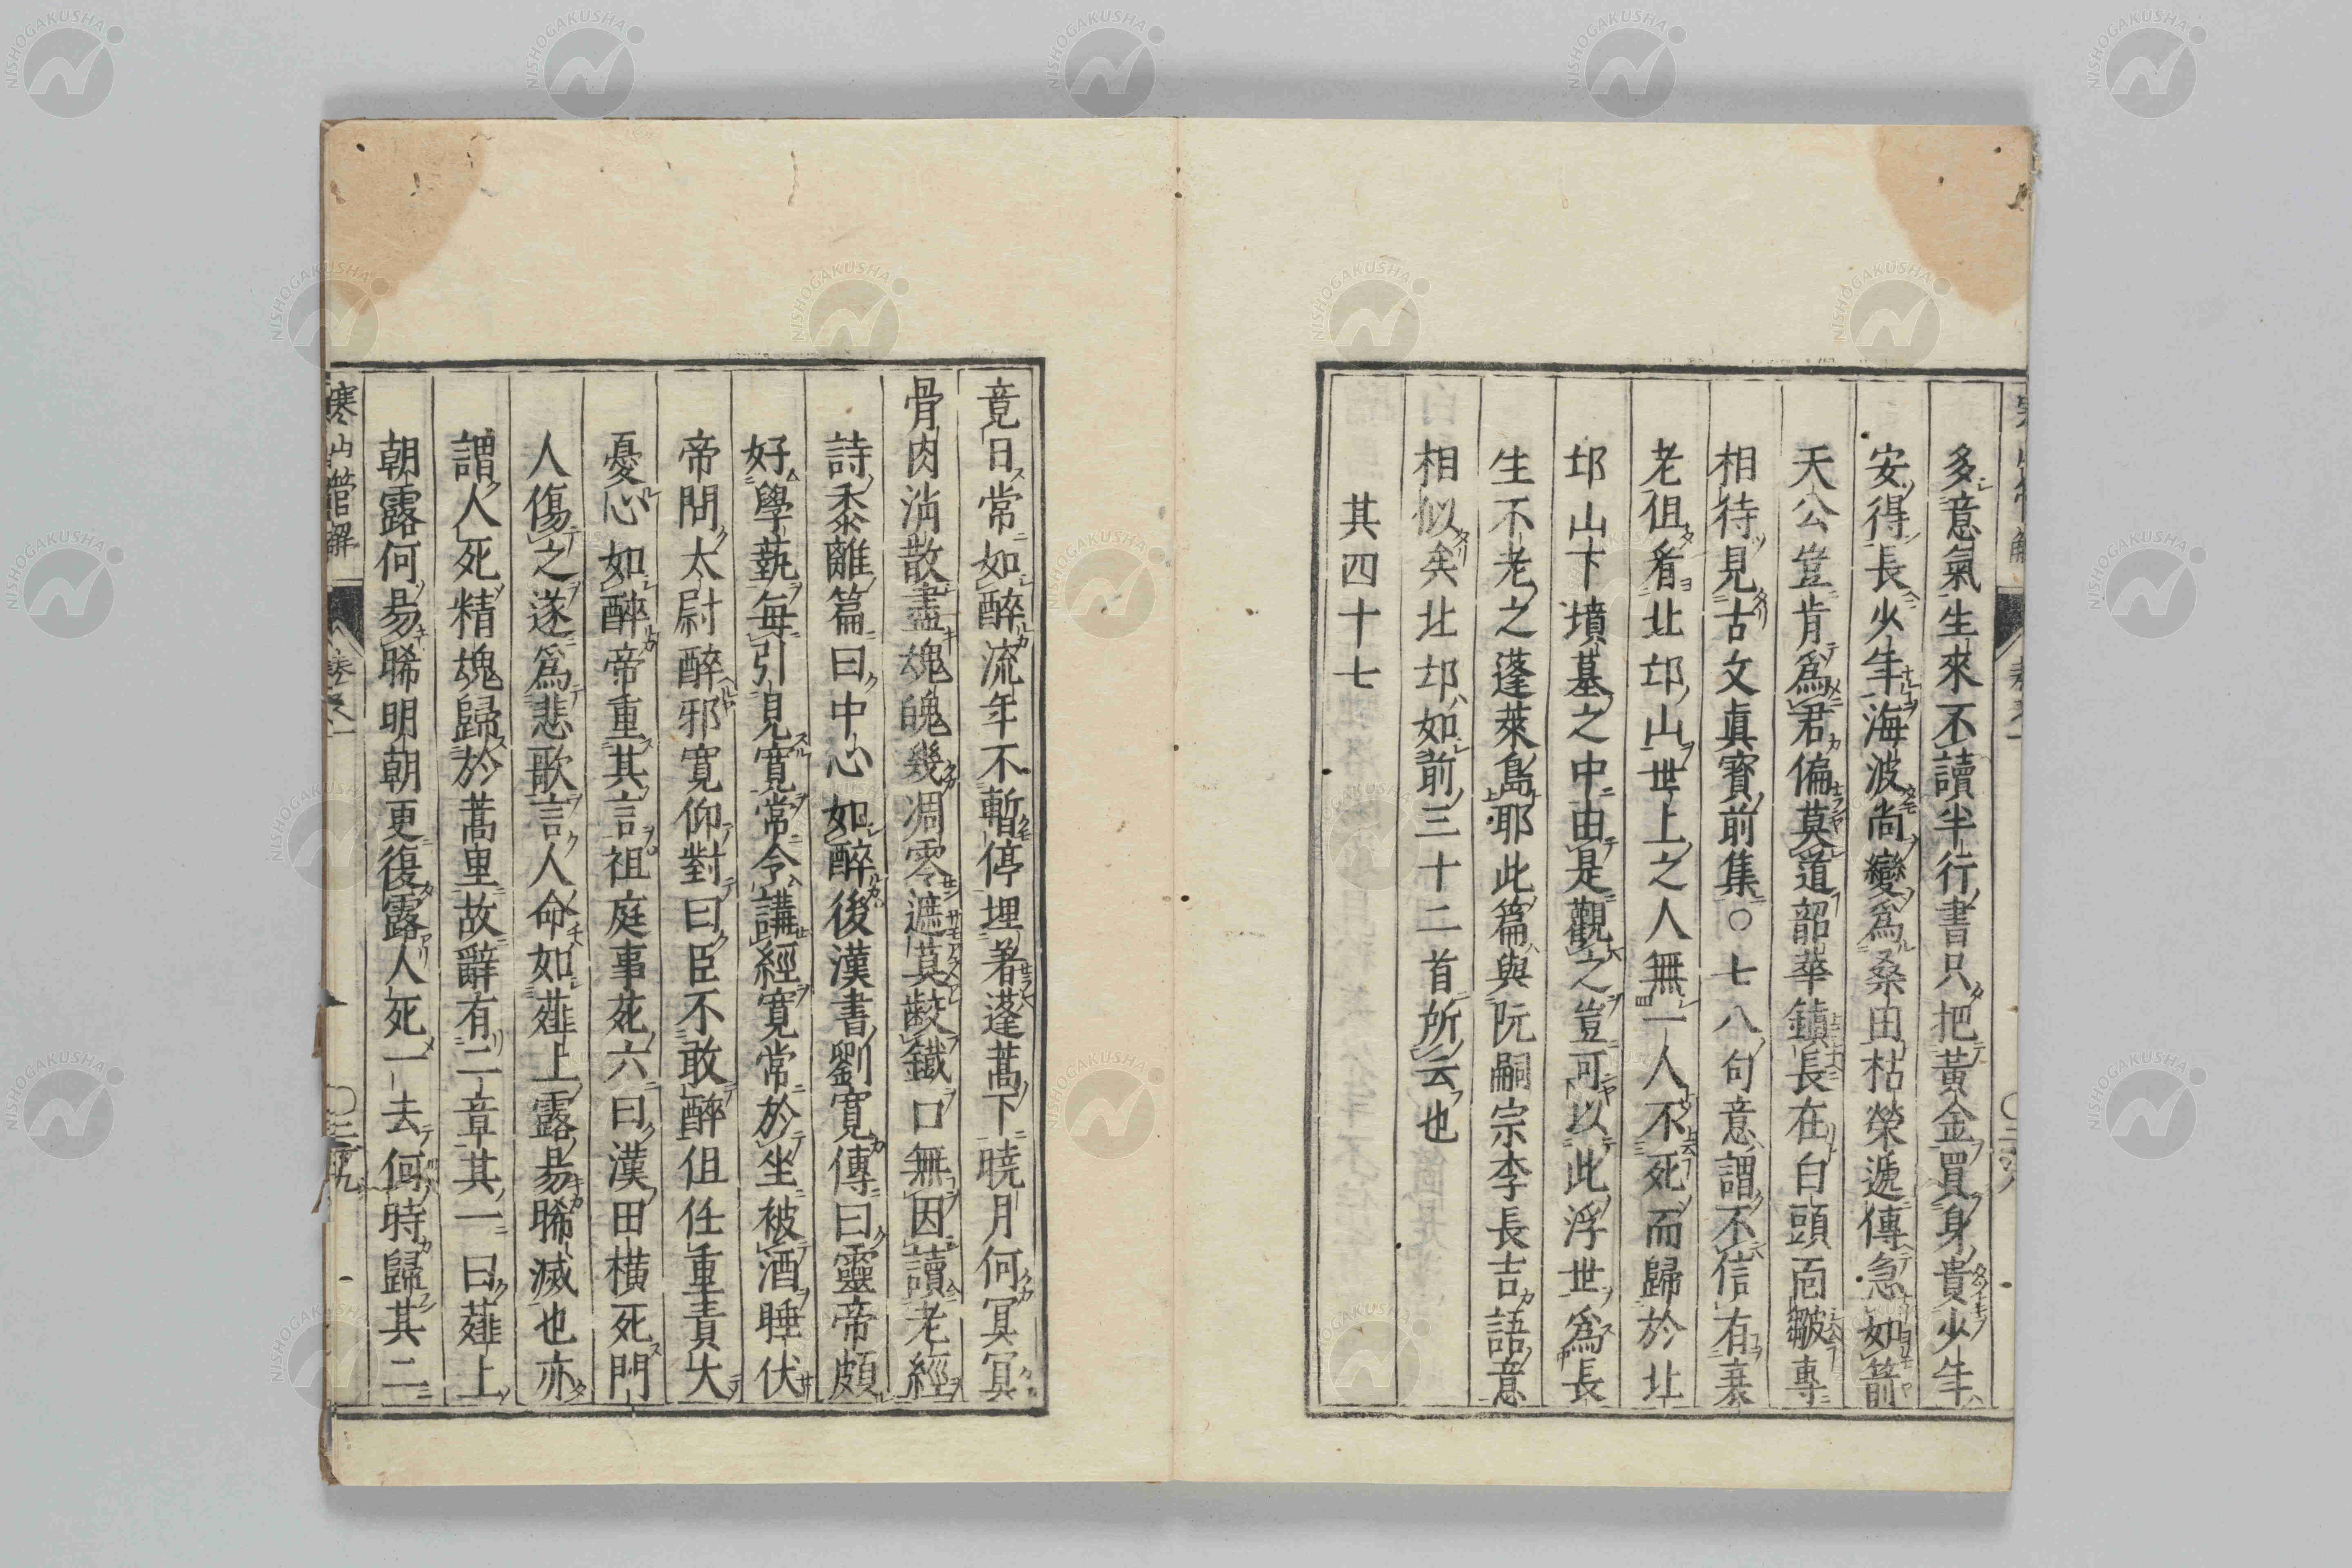 多意氣生來不讀半行書只把黃金買身貴少年
安得長少年海波尚變爲桑田枯榮遞傳急如箭
天公豈肯爲君偏莫道韶華鎮長在白頭面皺專
相待見古文眞寶前集○七八句意謂不信有衰
老徂看北邙山世上之人無一人不死而歸於北
邙山下墳墓之中由是觀之豈可以此浮世爲長
生不老之蓬萊島耶此篇與阮嗣宗李長吉語意
相似矣北邙如前三十二首所云也
其四十七
竟日常如醉流年不暫停埋著蓬蒿下曉月何冥冥
骨肉消散盡魂魄幾凋零遮莫齩鐵口無因讀老經
詩黍離篇曰中心如醉後漢書劉寬傳曰靈帝頗
好學藝每引見寬常令講經寬常於坐被酒睡伏
帝問太尉醉邪寬仰對曰臣不敢醉但任重責大
憂心如醉帝重其言祖庭事苑六曰漢田橫死門
人傷之遂爲悲歌言人命如薤上露易晞滅也亦
謂人死精魂歸於蒿里故辭有二章其一曰薤上
朝露何易晞明朝更復露人死一去何時歸其二
寒山詩管解
卷之一
○二十九
NISHOGAKUSHA